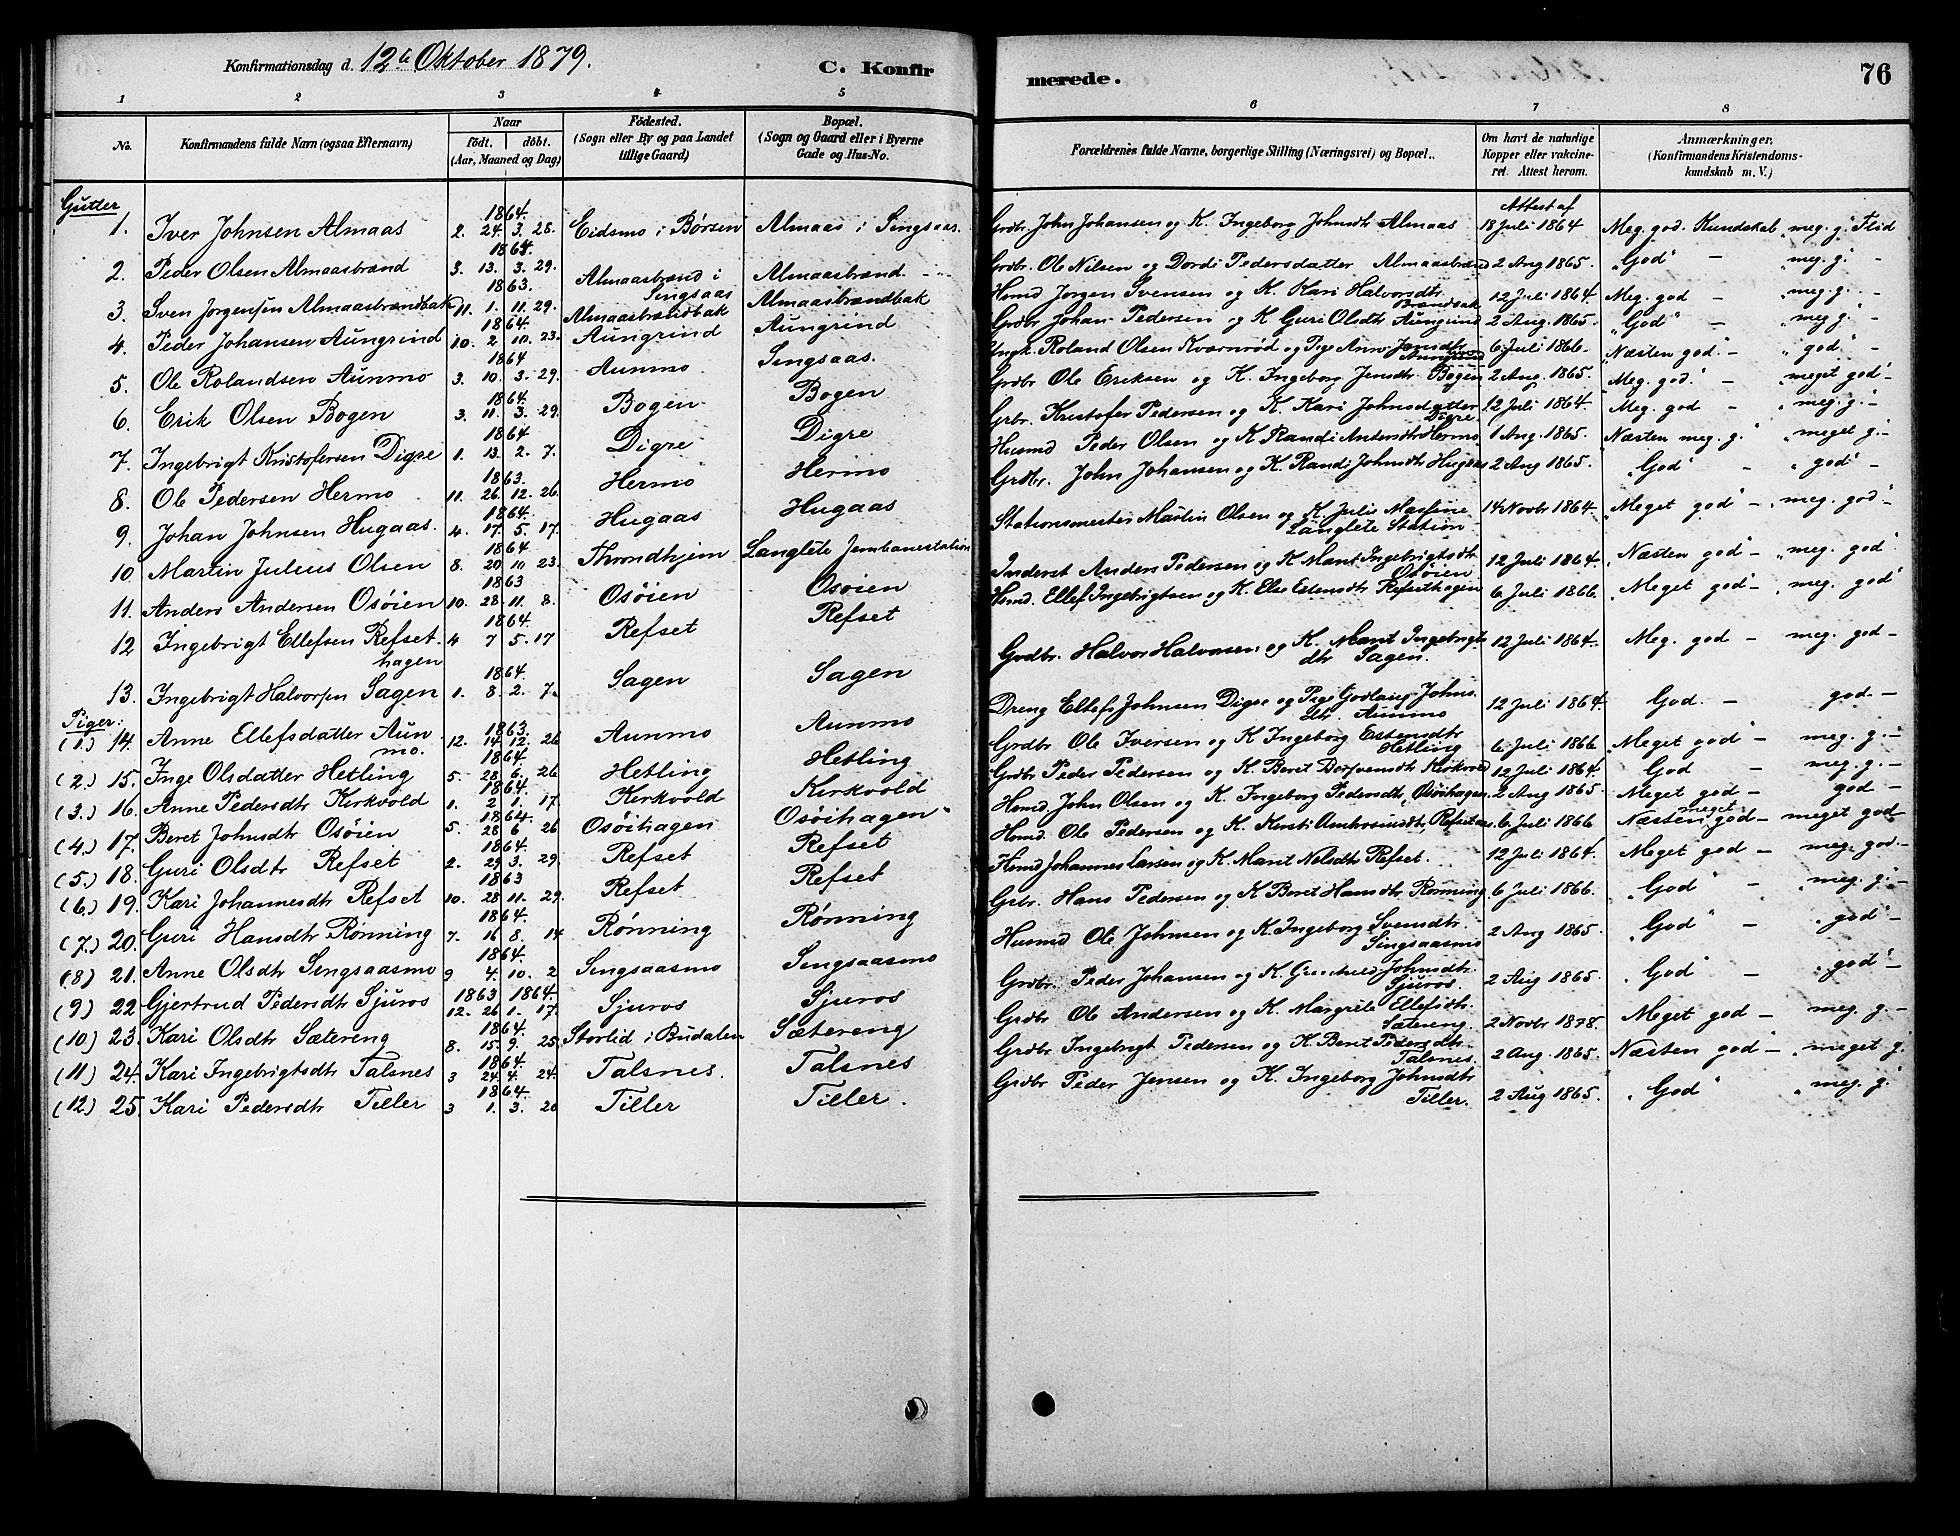 Konfirmationsdag d. 12te Oktober 1879. C. Konfirmerede. 76
1 2 3 4 5 6 7 8
No. Konfirmandens fulde Navn (ogsaa Efternavn) Naar födt. döbt. (Aar, Maaned og Dag) Födested. (Sogn eller By og paa Landet tillige Gaard) Bopæl. (Sogn og Gaard eller i Byerne Gade og Hus-No. Forældrenes fulde Navne, borgerlige Stilling (Næringsvei) og Bopæl. Om havt de naturlige Kopper eller vakcineret. Attest herom. Anmærkninger. (Konfirmandens Kristendomskundskab m. V.)
Gutter
1. Iver Johnsen Almaas 1864. 2. 24. 3. 28. Eidsmo i Børsen Almaas i Singsaas. Grdbr. John Johansen og K. Ingeborg Johnsdtr Almaas Attest af 18 Juli 1864 Meg. god. Kundskab meg. g. Flid
2. Peder Olsen Almaasbrænd 1864. 3. 13. 3. 29. Almaasbrænd i Singsaas Almaasbrænd. Grdbr. Ole Nilsen og Dordi Pedersdatter Almaasbrænd 2 Aug 1865. "God" - "meg. g. -
3. Sven Jørgensen Almaasbrændbak 1863. 11. 1. 11. 29. Almaasbrændbak Almaasbrændbak Husmd Jørgen Svensen og K. Kari Halvorsdtr. Brændbak 12 Juli 1864. Meg. god - "meg. g. -
4. Peder Johansen Aungrind 1864. 10. 2 10. 23. Aungrind Aungrind Grdbr. Johan Pedersen og K Guri Olsdtr Aungrind 2 Aug. 1865. "God" - "meg g. -
5. Ole Rolandsen Aunmo 1864 3. 10. 3. 29. Aunmo. Singsaas. Ungk. Roland Olsen Kværnrød og Pige Anne Jonsdtr 6 Juli 1866. "Næsten god." - "god" -
6. Erik Olsen Bogen 1864. 3. 11. 3. 29. Bogen Bogen Grdbr. Ole Eriksen og K. Ingeborg Jensdtr. Bogen 2 Aug. 1865. "Meg. god." - "meget god" -
7. Ingebrigt Kristofersen Digre 1864 1. 13. 2. 7. Digre Digre Grbr. Kristofer Pedersen og K. Kari Johnsdatter Digre 12 Juli 1864. Meg. god - "meg. g." -
8. Ole Pedersen Hermo 1863. 11. 26. 12. 26. Hermo Hermo Husmd Peder Olsen og K Randi Andersdtr Hermo 1 Aug. 1865. "Næsten meg. g." "meget g. -
9. Johan Johnsen Hugaas. 1864. 4. 17. 5. 17. Hugaas Hugaas Grdbr. John Johansen og K. Randi Johnsdtr Hugaas 2 Aug 1865. "God" - "god" -
10. Martin Julius Olsen 1864 8. 20 10 23. Throndhjem Langlete Jernbanestation Stationsmester Martin Olsen og K. Julie Massine Langlete Station 14 Novbr 1864. "Meget god" - "meg. god" -
11. Anders Andersen Osøien 1863 10. 28 11. 8. Osøien Osøien Inderst Anders Pedersen og K Marit Ingebrigtsdtr Osøien 12 Juli 1864. "Næsten god" - "meg. god"
12 Ingebrigt Ellefsen Refsethagen 1864. 4 7 5. 17 Refset Refset Husmd. Ellef Ingebrigtsen og K. Else Estensdtr Refsethagen 6 Juli 1866. "Meget god" - "meg. god"
13. Ingebrigt Halvorsen Sagen 1864. 1. 8. 2. 7. Sagen Sagen Grdbr. Halvor Halvorsen og K. Marit Ingebrigtsdtr Sagen. 12 Juli 1864. Meg. god - meg. god -
Piger:
(1.) 14. Anne Ellefsdatter Aunmo. 1863. 12. 14 12. 26 Aunmo Aunmo Dreng Ellef Johnsen Digre og Pige Godlaug Johnsdtr. Aunmo 12 Juli 1864. God. - god. -
(2.) 15. Inge Olsdatter Hetling 1864. 5. 28 6. 26 Hetling Hetling Grdbr Ole Iversen og K Ingeborg Estensdtr Hetling 6 Juli 1866 "Meget god" - meg. g. -
(3.) 16. Anne Pedersdtr Kirkvold 1864. 1. 2 1. 17. Kirkvold Kirkvold Grdbr Peder Pedersen og K. Beret Kirkvold 12 Juli 1864. God - meg. g. -
(4.) 17. Beret Johnsdtr Osøien 1864. 5. 28 6 26 Osøihagen Osøihagen Husmd. John Olsen og K. Ingeborg Pedersdtr, Osøihagen. 2 Aug 1865 Meget god - god -
(5.) 18. Guri Olsdtr Refset 1864. 2. 29 3. 29. Refset Refset Husmd. Ole Pedersen og K. Kersti Refset 6 Juli 1866 Næsten meget god - meget god -
(6.) 19. Kari Johannesdtr Refset 1863 10. 28 11. 29. Refset Refset Husmd Johannes Larsen og K. Marit Nelsdtr Refset. 12 Juli 1864. Meget god - meg. god. -
(7.) 20. Guri Hansdtr Rønning 1864. 7. 16 8. 14 Rønning Rønning Grbr. Hans Pedersen og K Beret Hansdtr Rønning 6 Juli 1866. "God" - "meg. g." -
(8) 21. Anne Olsdtr Singsaasmo 1864. 9 4. 10. 2 Singsaasmo Singsaasmo Husmd Ole Johnsen og K. Ingeborg Svensdtr. Singsaasmo 2 Aug 1865. "God" - "god" -
(9) 22 Gjertrud Pedersdtr Sjuros 1863 1864. 12. 26 1. 17. Sjuros Sjuros Grdbr. Peder Johansen og K. Gunhild Johnsdtr. Sjuros. 2 Aug 1865. "God" - "god" -
(10) 23. Kari Olsdtr Sætereng 1864. 8. 15. 9. 25 Storlid i Budalen Sætereng Grdbr Ole Andersen og K. Margrete Ellefsdtr. Sætereng. 2 Novbr 1878. Meget god - meg. g. -
(11) 24. Kari Ingebrigtsdtr Talsnes 1864. 3 24 4. 24. Talsnes. Talsnes Grdbr Ingebrigt Pedersen og K. Berit Pedersdtr. Talsnes. 2 Aug. 1865. Næsten god - "meget g.
(12) 25 Kari Pedersdtr Tiller 1864. 3 1. 3. 20 Tiller Tiller. Grdbr Peder Jensen og K. Ingeborg Johnsdtr Tiller. 2 Aug 1865. "God" "meg. g."